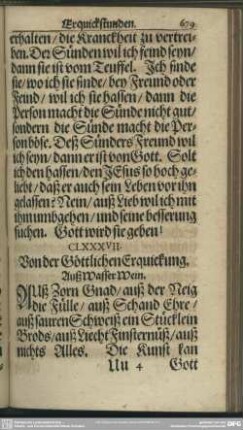 Erquickstunden. 679
erhalten / die Kranckheit zu vertrei-
ben. Der Sünden wil ich feind seyn /
dann sie ist vom Teuffel. Ich finde
sie / wo ich sie finde / bey Freund oder
Feind / wil ich sie hassen / dann die
Person macht die Sünde nicht gut /
sondern die Sünde macht die Per-
son böse. Deß Sünders Freund wil
ich seyn / dann er ist von Gott. Solt
ich den hassen / den JEsus so hoch ge-
liebt / daß er auch sein Leben vor ihn
gelassen? Nein / auß Lieb wil ich mit
ihm umbgehen / und seine besserung
suchen. Gott wird sie geben!
CLXXXVII.
Von der Göttlichen Erquickung.
Auß Wasser Wein.
AUß Zorn Gnad / auß der Neig
die Fülle / auß Schand Ehre /
auß sauren Schweiß ein Stücklein
Brods / auß Liecht Finsternüß / auß
nichts Alles. Die Kunst kan
Uu 4 Gott